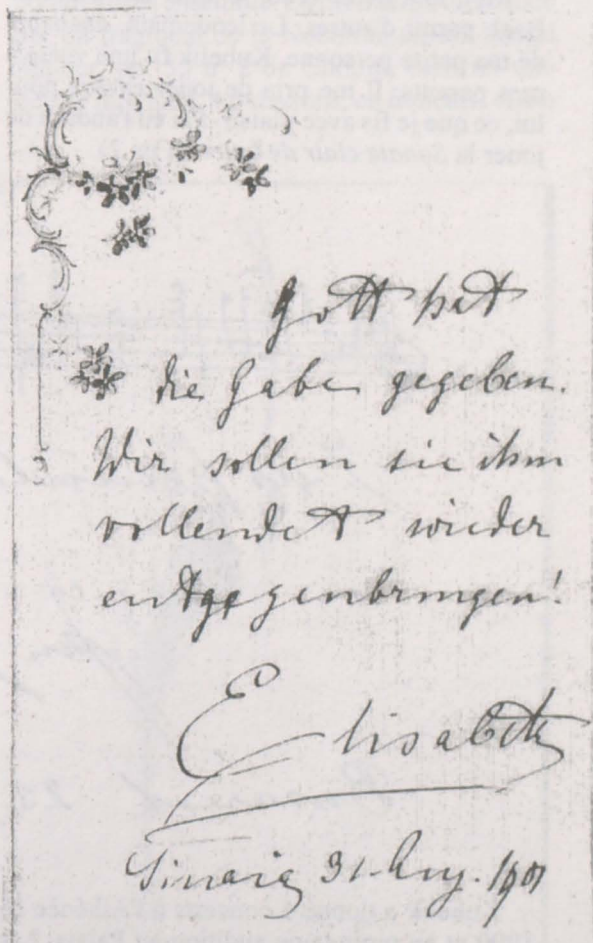 Gott hat
die Gabe gegeben.
Wir sollen sie ihm
vollendet wieder
entgegenbringen!
Elisabeth
Sinaia 31. Aug. 1901